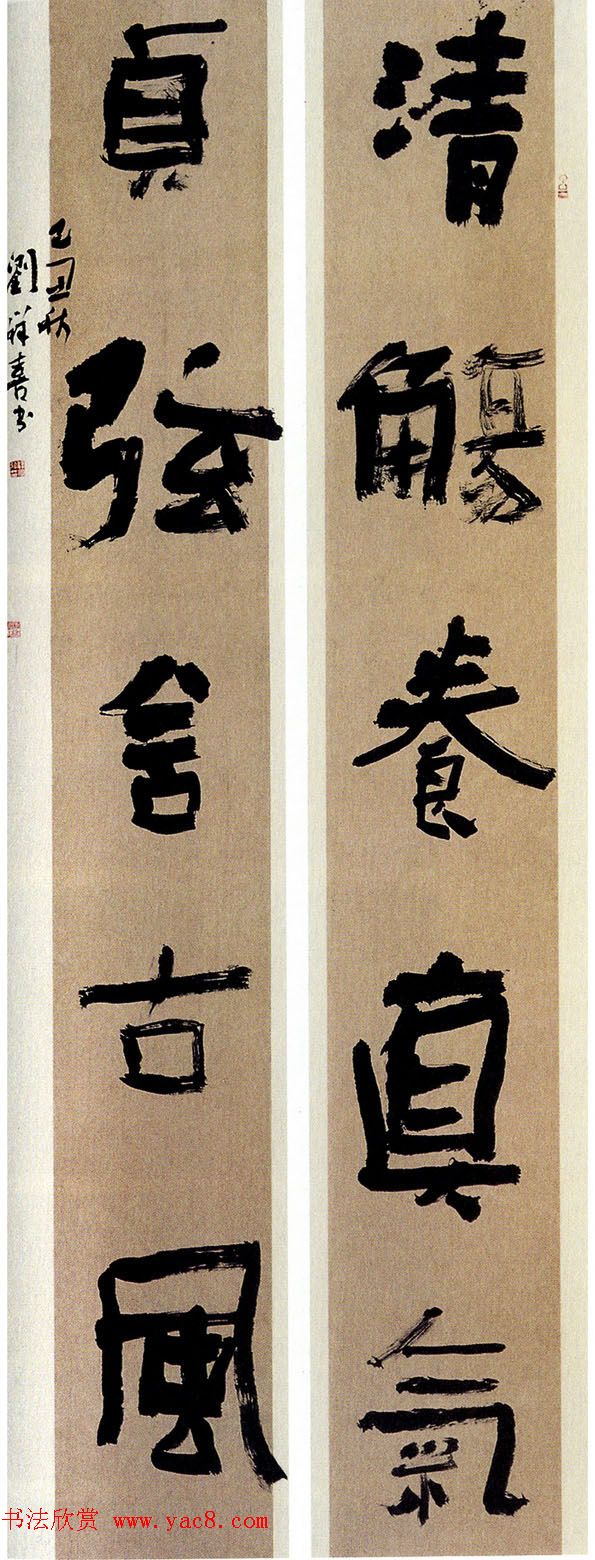 清觴養真氣
貞弦含古風
己丑秋
劉祥喜书
书法欣赏 www.yac8.com